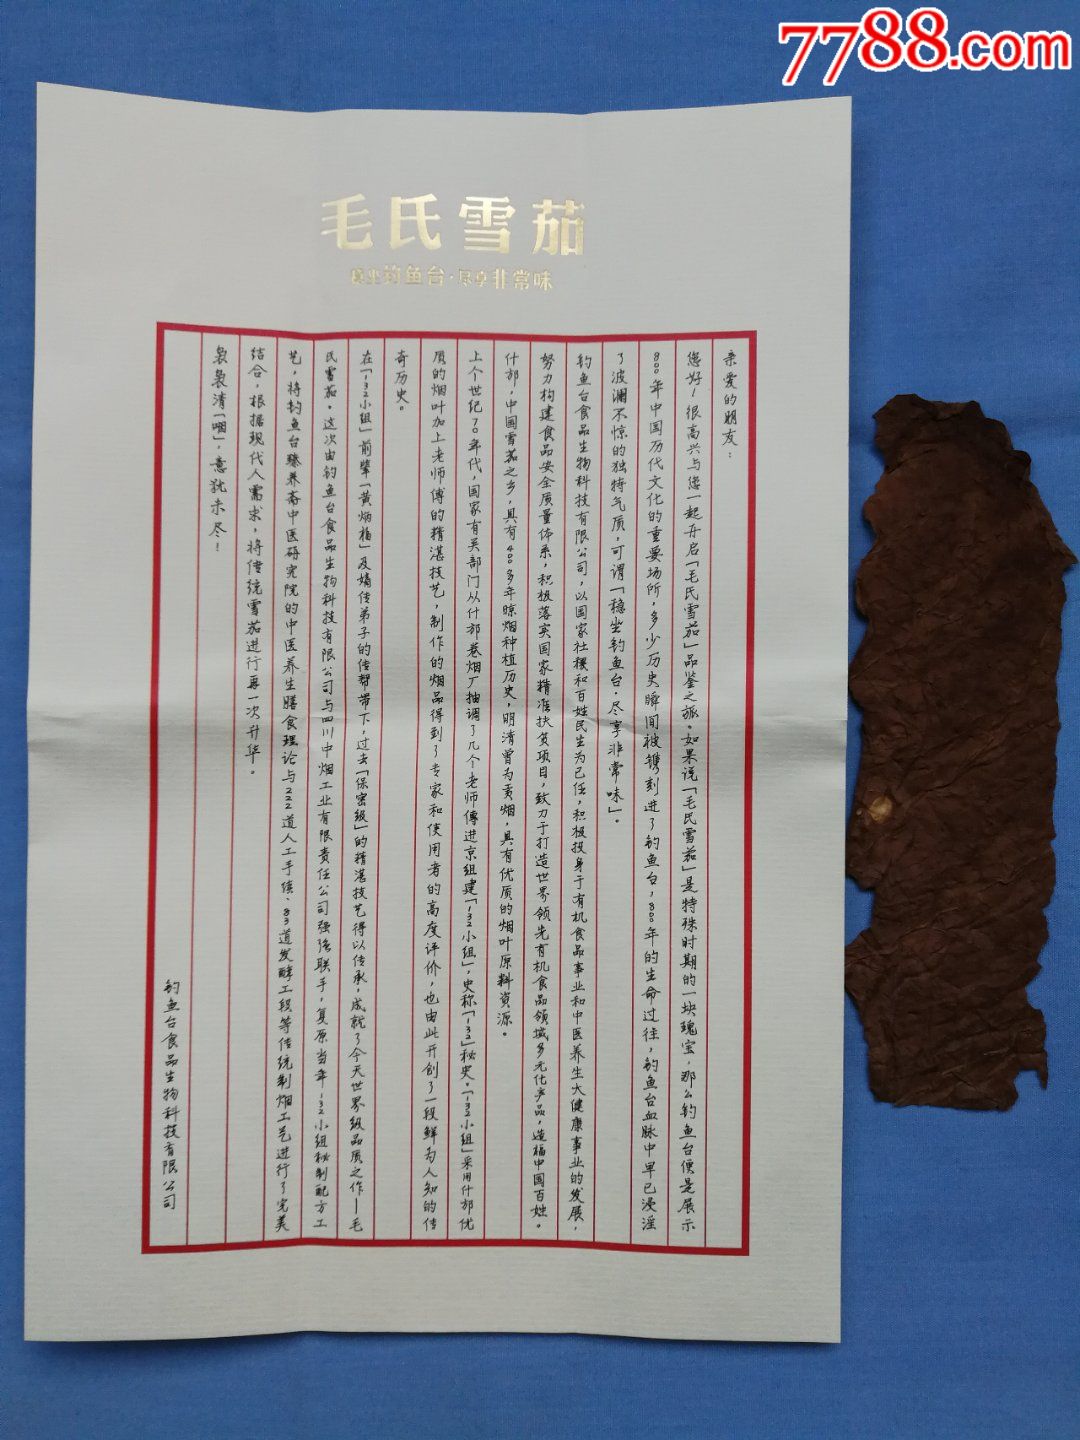 7788.com
毛氏雪茄
稳坐钓鱼台·尽享非常味
亲爱的朋友：
您好！很高兴与您一起开启「毛氏雪茄」品鉴之旅。如果说「毛氏雪茄」是特殊时期的一块瑰宝，那么钓鱼台便是展示
800年中国历代文化的重要场所，多少历史瞬间被镌刻进了钓鱼台，800年的生命过往，钓鱼台血脉中早已浸淫
了波澜不惊的独特气质，可谓「稳坐钓鱼台·尽享非常味」。
钓鱼台食品生物科技有限公司，以国家社稷和百姓民生为己任，积极投身于有机食品事业和中医养生大健康事业的发展，
努力构建食品安全质量体系，积极落实国家精准扶贫项目，致力于打造世界领先有机食品领域多元化产品，造福中国百姓。
什邡，中国雪茄之乡，具有400多年晾烟种植历史，明清曾为贡烟，具有优质的烟叶原料资源。
上个世纪70年代，国家有关部门从什邡卷烟厂抽调了几个老师傅进京组建「132小组」，史称「132」秘史。「132小组」采用什邡优
质的烟叶加上老师傅的精湛技艺，制作的烟品得到了专家和使用者的高度评价，也由此开创了一段鲜为人知的传
奇历史。
在「132小组」前辈「黄炳福」及嫡传弟子的传帮带下，过去「保密级」的精湛技艺得以传承，成就了今天世界级品质之作—毛
氏雪茄。这次由钓鱼台食品生物科技有限公司与四川中烟工业有限责任公司强强联手，复原当年132小组秘制配方工
艺，将钓鱼台臻养斋中医研究院的中医养生膳食理论与222道人工手续、83道发酵工段等传统制烟工艺进行了完美
结合，根据现代人需求，将传统雪茄进行再一次升华。
袅袅清「咽」，意犹未尽！
钓鱼台食品生物科技有限公司